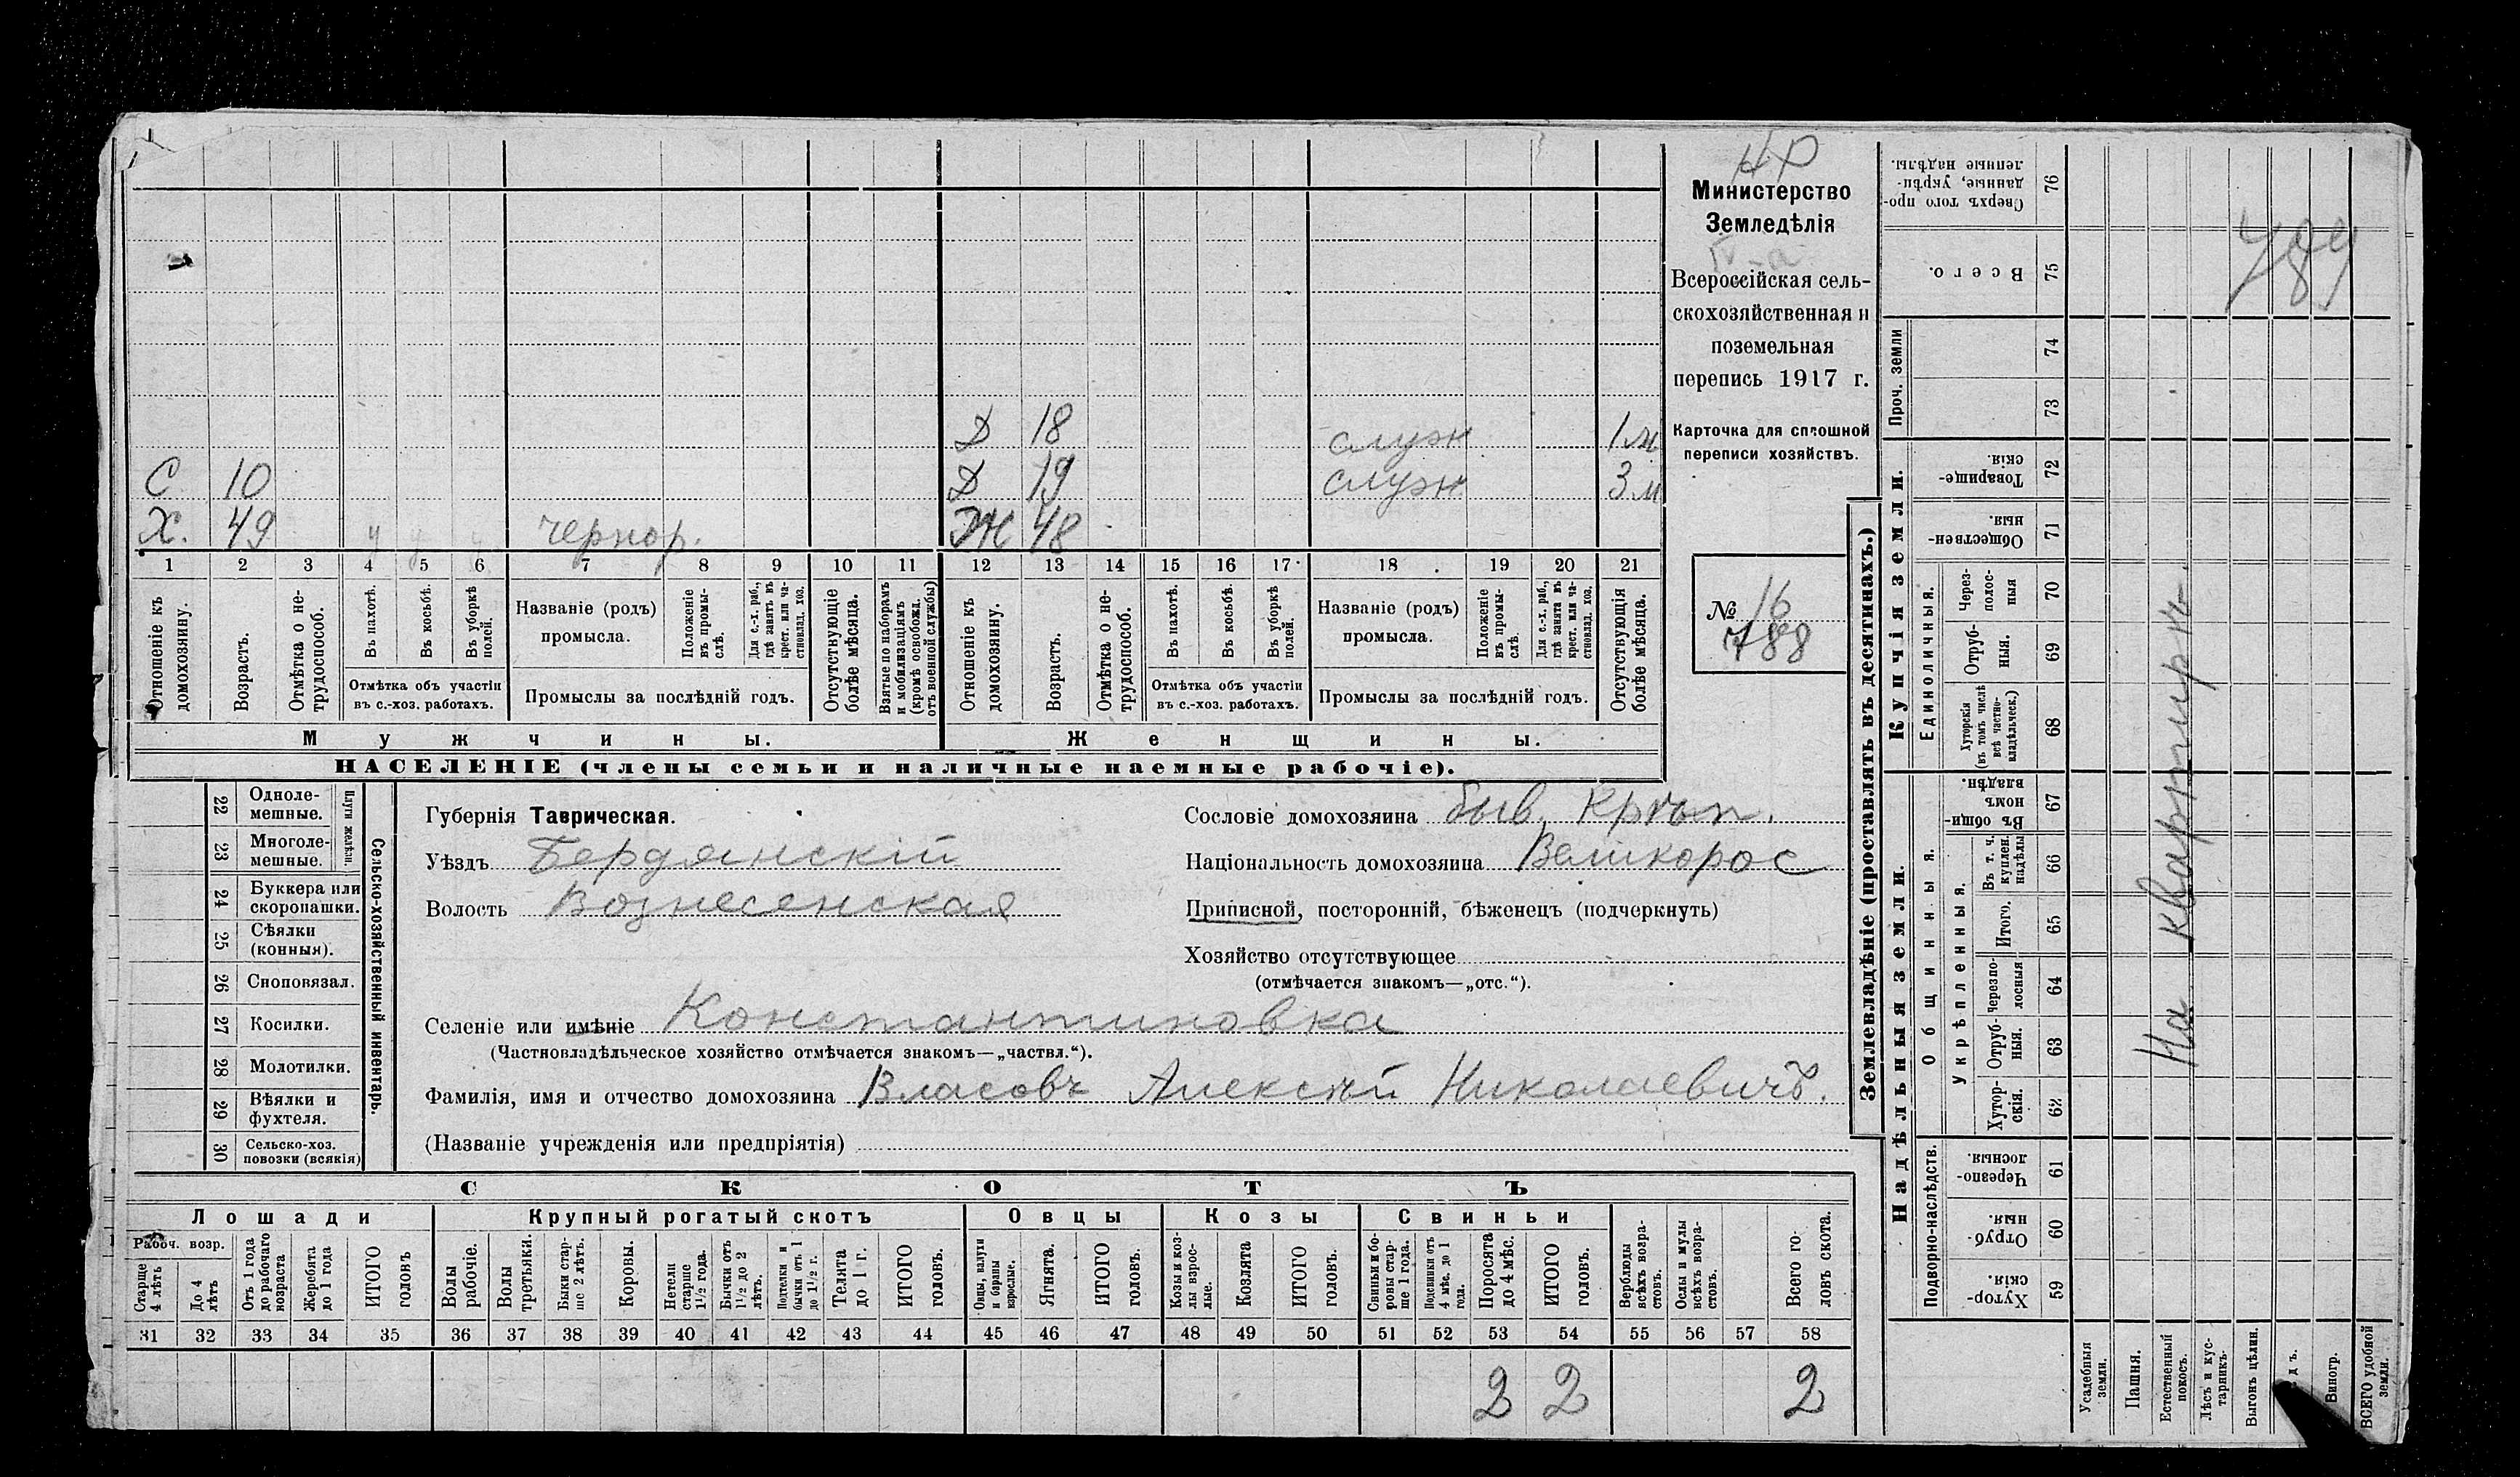 НР
Министерство
Земледѣлія
Всероссійская сель-
скохозяйственная и
поземельная
перепись 1917 г.
Карточка для сплошной
переписи хозяйствъ.
№ 16
788
789
Д 18 служ 1 м
С 10 Д 19 служ 3 м
Х. 49 у у у чернор. Ж 48
1 2 3 4 5 6 7 8 9 10 11 12 13 14 15 16 17 18 19 20 21
Отношеніе къ домохозяину.
Возрастъ.
Отмѣтка о не-трудоспособ.
Въ пахотѣ.
Въ косьбѣ.
Въ уборкѣ полей.
Отмѣтка объ участіи
въ с.-хоз. работахъ.
Названіе (родъ)
промысла.
Положеніе въ промы-слѣ.
Для с.-х. раб., гдѣ занятъ въ крест. или ча-стновлад. хоз.
Промыслы за послѣдній годъ.
Отсутствующіе болѣе мѣсяца.
Взятые по наборамъ и мобилизаціямъ (кромѣ освобожд. отъ военной службы)
Отношеніе къ домохозяину.
Возрастъ.
Отмѣтка о не-трудоспособ.
Въ пахотѣ.
Въ косьбѣ.
Въ уборкѣ полей.
Отмѣтка объ участіи
въ с.-хоз. работахъ.
Названіе (родъ)
промысла.
Положеніе въ промы-слѣ.
Для с.-х. раб., гдѣ занята въ крест. или ча-стновлад. хоз.
Промыслы за послѣдній годъ.
Отсутствующія болѣе мѣсяца.
Мужчины. Женщины.
НАСЕЛЕНІЕ (члены семьи и наличные наемные рабочіе).
22 Одноле-мешные.
23 Многоле-мешные.
Плуги желѣзн.
24 Буккера или скоропашки.
25 Сѣялки (конныя).
26 Сноповязал.
27 Косилки.
28 Молотилки.
29 Вѣялки и фухтеля.
30 Сельско-хоз. повозки (всякія)
Сельско-хозяйственный инвентарь.
Губернія Таврическая.
Уѣздъ Бердянскій
Волость Вознесенская
Сословіе домохозяина быв. Крѣп.
Національность домохозяина Великорос
Приписной, посторонній, бѣженец (подчеркнуть)
Хозяйство отсутствующее
(отмѣчается знакомъ—„отс.“).
Селеніе или имѣніе Константиновка
(Частновладѣльческое хозяйство отмѣчается знакомъ—„частвл.“).
Фамилія, имя и отчество домохозяина Власовъ Алексѣй Николаевичъ.
(Названіе учрежденія или предпріятія)
СКОТЪ
Лошади Крупный рогатый скотъ Овцы Козы Свиньи
Рабоч. возр.
Старше 4 лѣтъ
До 4 лѣтъ
Отъ 1 года до рабочаго возраста
Жеребята до 1 года
ИТОГО головъ
Волы рабочіе.
Волы третьяки.
Быки стар-ше 2 лѣтъ.
Коровы.
Нетели старше 1½ года.
Бычки отъ 1½ до 2 лѣтъ.
Подтелки и бычки отъ 1 до 1½ г.
Телята до 1 г.
ИТОГО головъ.
Овцы, валухи и бараны взрослые.
Ягнята.
ИТОГО головъ.
Козы и коз-лы взрос-лые.
Козлята
ИТОГО головъ.
Свиньи и бо-ровы стар-ше 1 года.
Подсвинки отъ 4 мѣс. до 1 года.
Поросята до 4 мѣс.
ИТОГО головъ.
Верблюды всѣхъ возра-стовъ.
Ослы и мулы всѣхъ возра-стовъ.
Всего го-ловъ скота.
31 32 33 34 35 36 37 38 39 40 41 42 43 44 45 46 47 48 49 50 51 52 53 54 55 56 57 58
2 2 2
Землевладѣніе (проставлять въ десятинахъ.)
Надѣльныя земли.
Купчія земли.
Проч. земли
Подворно-наслѣдств.
Общинныя.
Укрѣпленныя.
Единоличныя.
Хутор-скія. 59
Отруб-ныя. 60
Черезпо-лосныя. 61
Хутор-скія. 62
Отруб-ныя. 63
Черезпо-лосныя 64
Итого. 65
Въ т. ч. куплен. надѣлы 66
Въ общи-номъ владѣн. 67
Хуторскія (въ томъ числѣ всѣ частно-владѣльческ.) 68
Отруб-ныя. 69
Через-полос-ныя 70
Обществен-ныя. 71
Товарище-скія. 72
73
74
Всего. 75
Сверхъ того про-данные, укрѣп-ленные надѣлы. 76
Усадебныя земли.
Пашня.
Естественный покосъ.
Лѣсъ и кус-тарникъ.
Выгонъ цѣлин.
Виногр.
ВСЕГО удобной земли.
На квартирѣ.